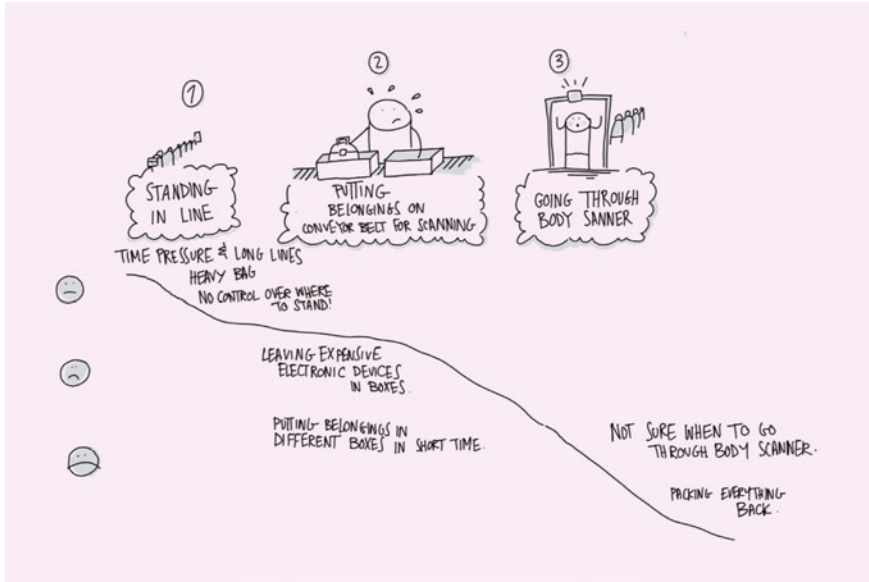 1
STANDING
IN LINE
2
PUTTING
BELONGINGS ON
CONVEYOR BELT FOR SCANNING
3
GOING THROUGH
BODY SANNER
TIME PRESSURE & LONG LINES
HEAVY BAG
NO CONTROL OVER WHERE
TO STAND!
LEAVING EXPENSIVE
ELECTRONIC DEVICES
IN BOXES.
PUTTING BELONGINGS IN
DIFFERENT BOXES IN SHORT TIME.
NOT SURE WHEN TO GO
THROUGH BODY SCANNER.
PACKING EVERYTHING
BACK.